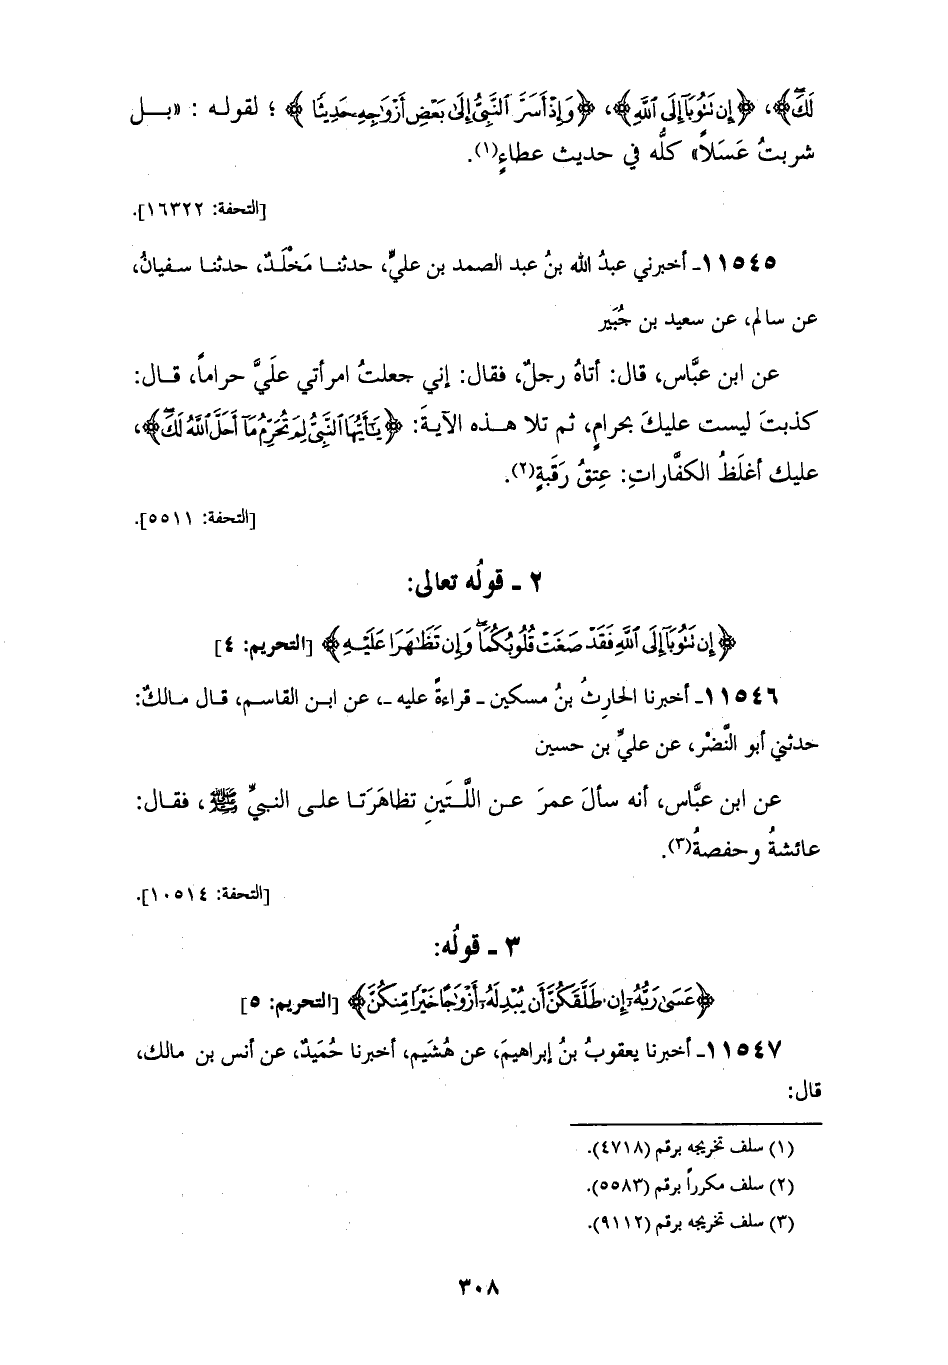 لَكَ﴾، ﴿إِن تَتُوبَآ إِلَى ٱللَّهِ﴾، ﴿وَإِذۡ أَسَرَّ ٱلنَّبِيُّ إِلَىٰ بَعۡضِ أَزۡوَٰجِهِۦ حَدِيثٗا﴾ ؛ لقوله : «بل
شربتُ عَسَلاً» كلُّه في حديث عطاءٍ(١).
[التحفة: ١٦٣٢٢].
١١٥٤٥- أخبرني عبدُ الله بنُ عبد الصمد بن عليٍّ، حدثنا مَخْلَدٌ، حدثنا سفيانُ،
عن سالم، عن سعيد بن جُبَير
عن ابن عبَّاس، قال: أتاهُ رجلٌ، فقال: إني جعلتُ امرأتي علَيَّ حراماً، قال:
كذبتَ ليست عليكَ بحرامٍ، ثم تلا هذه الآيةَ: ﴿يَٰٓأَيُّهَا ٱلنَّبِيُّ لِمَ تُحَرِّمُ مَآ أَحَلَّ ٱللَّهُ لَكَ﴾،
عليك أغلَظُ الكفَّاراتِ: عِتقُ رَقَبةٍ(٢).
[التحفة: ٥٥١١].
٢ ـ قولُه تعالى:
﴿إِن تَتُوبَآ إِلَى ٱللَّهِ فَقَدۡ صَغَتۡ قُلُوبُكُمَاۖ وَإِن تَظَٰهَرَا عَلَيۡهِ﴾ [التحريم: ٤]
١١٥٤٦- أخبرنا الحارِثُ بنُ مسكين ـ قراءةً عليه ـ، عن ابن القاسم، قال مالكٌ:
حدثني أبو النَّضْر، عن عليِّ بن حسين
عن ابن عبَّاس، أنه سألَ عمرَ عن اللَّتَينِ تظاهَرَتا على النبيِّ ﷺ، فقال:
عائشةُ وحفصةُ(٣).
[التحفة: ١٠٥١٤].
٣ ـ قولُه:
﴿عَسَىٰ رَبُّهُۥٓ إِن طَلَّقَكُنَّ أَن يُبۡدِلَهُۥٓ أَزۡوَٰجًا خَيۡرٗا مِّنكُنَّ﴾ [التحريم: ٥]
١١٥٤٧- أخبرنا يعقوبُ بنُ إبراهيمَ، عن هُشَيم، أخبرنا حُمَيدٌ، عن أنس بن مالك،
قال:
(١) سلف تخريجه برقم (٤٧١٨).
(٢) سلف مكرراً برقم (٥٥٨٣).
(٣) سلف تخريجه برقم (٩١١٢).
٣٠٨